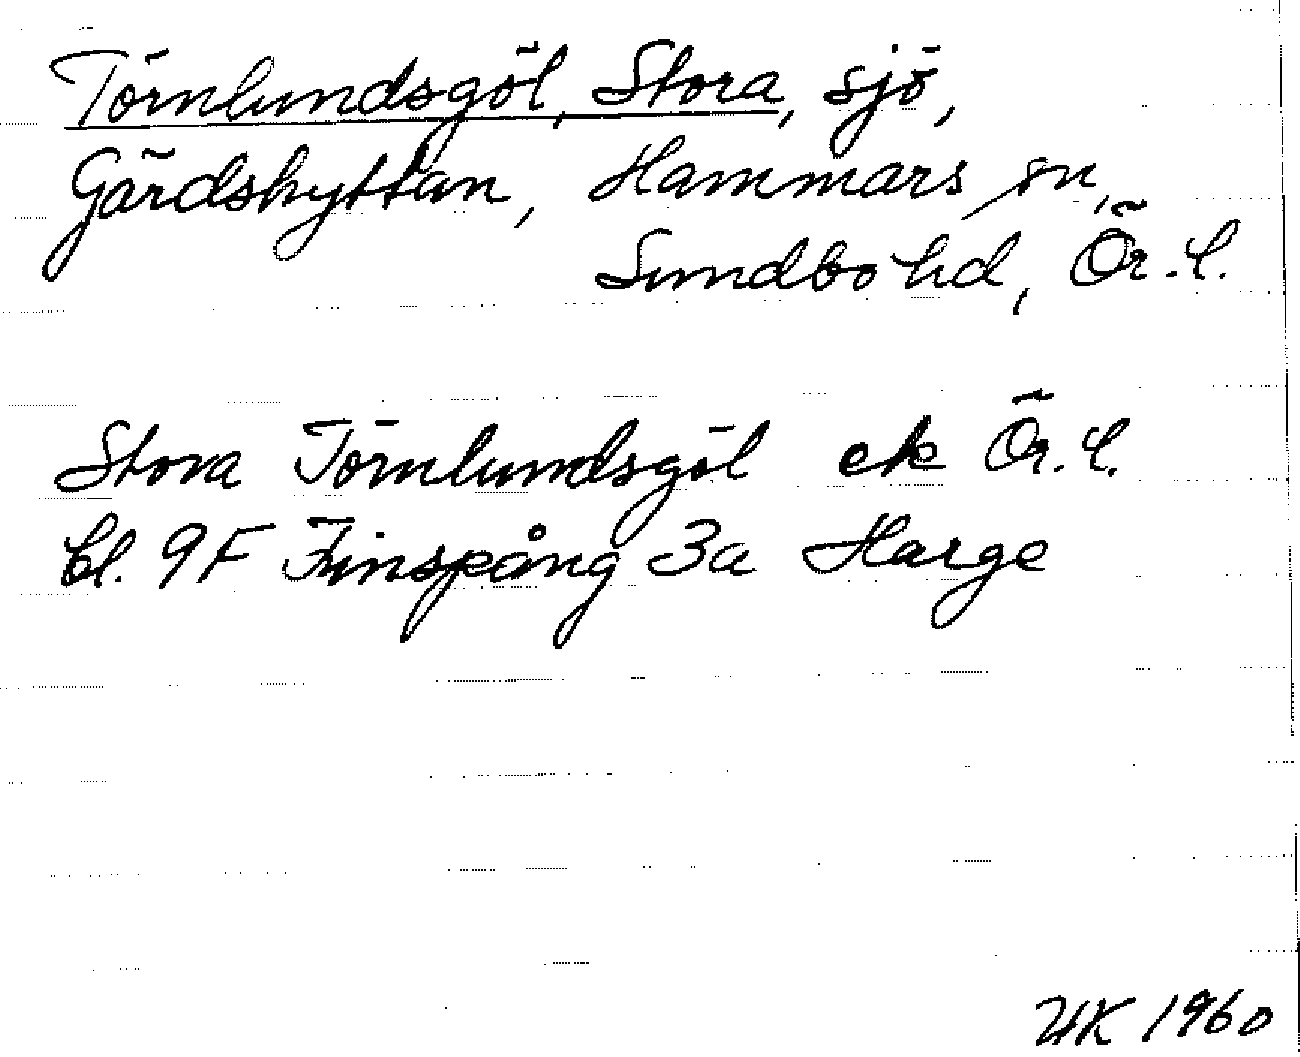 Törnlundsgöl, Stora, sjö,
Gärdshyttan, Hammars sn,
Sundbo hd, Ör. l.
Stora Törnlundsgöl ek Ör. l.
bl. 9F Finspång 3a Harge
UK 1960